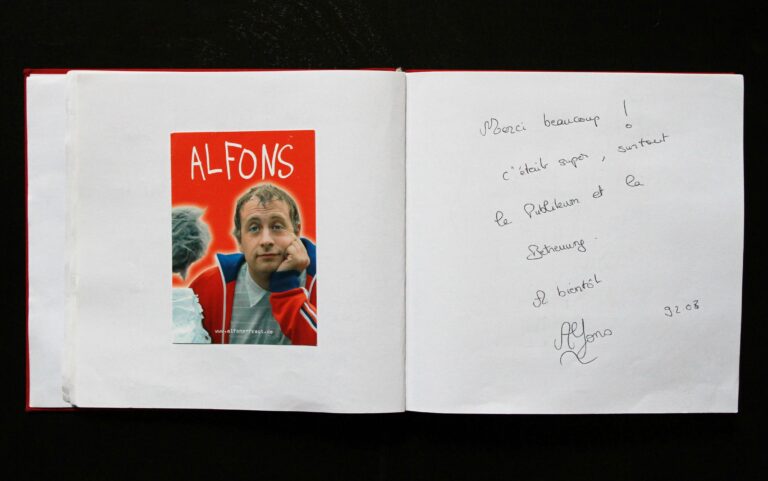 ALFONS
www.alfonsfragt.de
Merci beaucoup !
c'était super, surtout
le Publikum et la
Betreuung.
A bientôt
Alfons
9 2 08